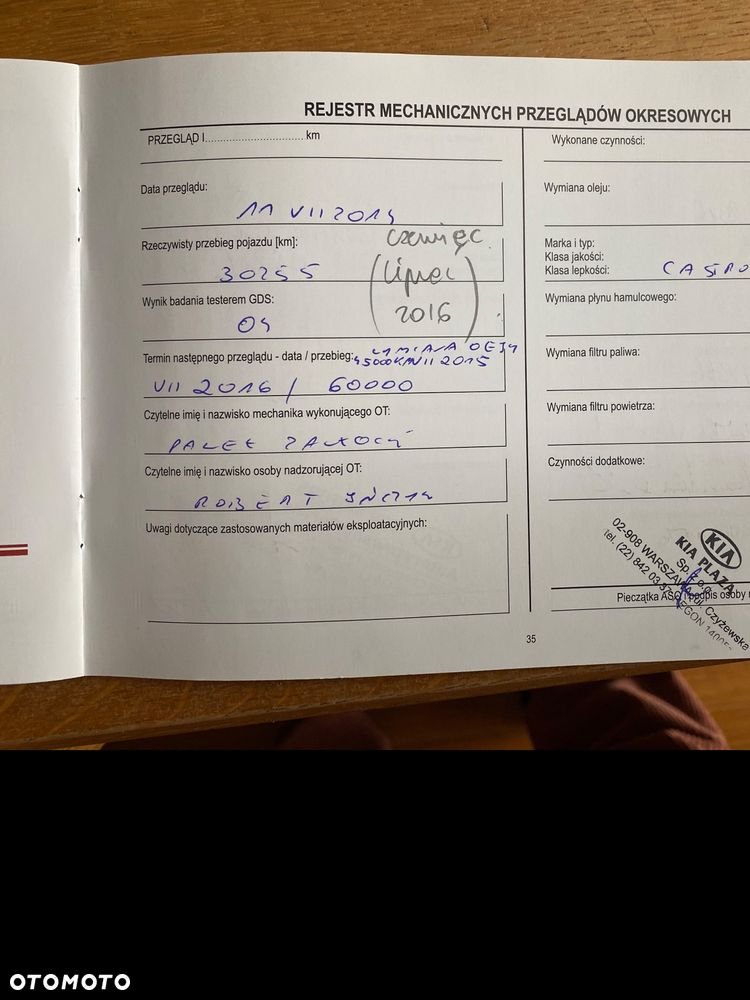 REJESTR MECHANICZNYCH PRZEGLĄDÓW OKRESOWYCH
PRZEGLĄD I.............................. km
Data przeglądu:
11 VII 2014
Rzeczywisty przebieg pojazdu [km]:
30255
czerwiec
(lipiec
2016)
Wynik badania testerem GDS:
Termin następnego przeglądu - data / przebieg:
45000KM VII 2015
VII 2016 / 60000
Czytelne imię i nazwisko mechanika wykonującego OT:
Czytelne imię i nazwisko osoby nadzorującej OT:
ROBERT
Uwagi dotyczące zastosowanych materiałów eksploatacyjnych:
Wykonane czynności:
Wymiana oleju:
Marka i typ:
Klasa jakości:
Klasa lepkości:
CASTRO
Wymiana płynu hamulcowego:
Wymiana filtru paliwa:
Wymiana filtru powietrza:
Czynności dodatkowe:
KIA
KIA PLAZA
Sp. z o.o.
02-908 WARSZAWA, ul. Czyżewska
tel. (22) 842 03 57
Pieczątka ASO i podpis osoby
35
OTOMOTO